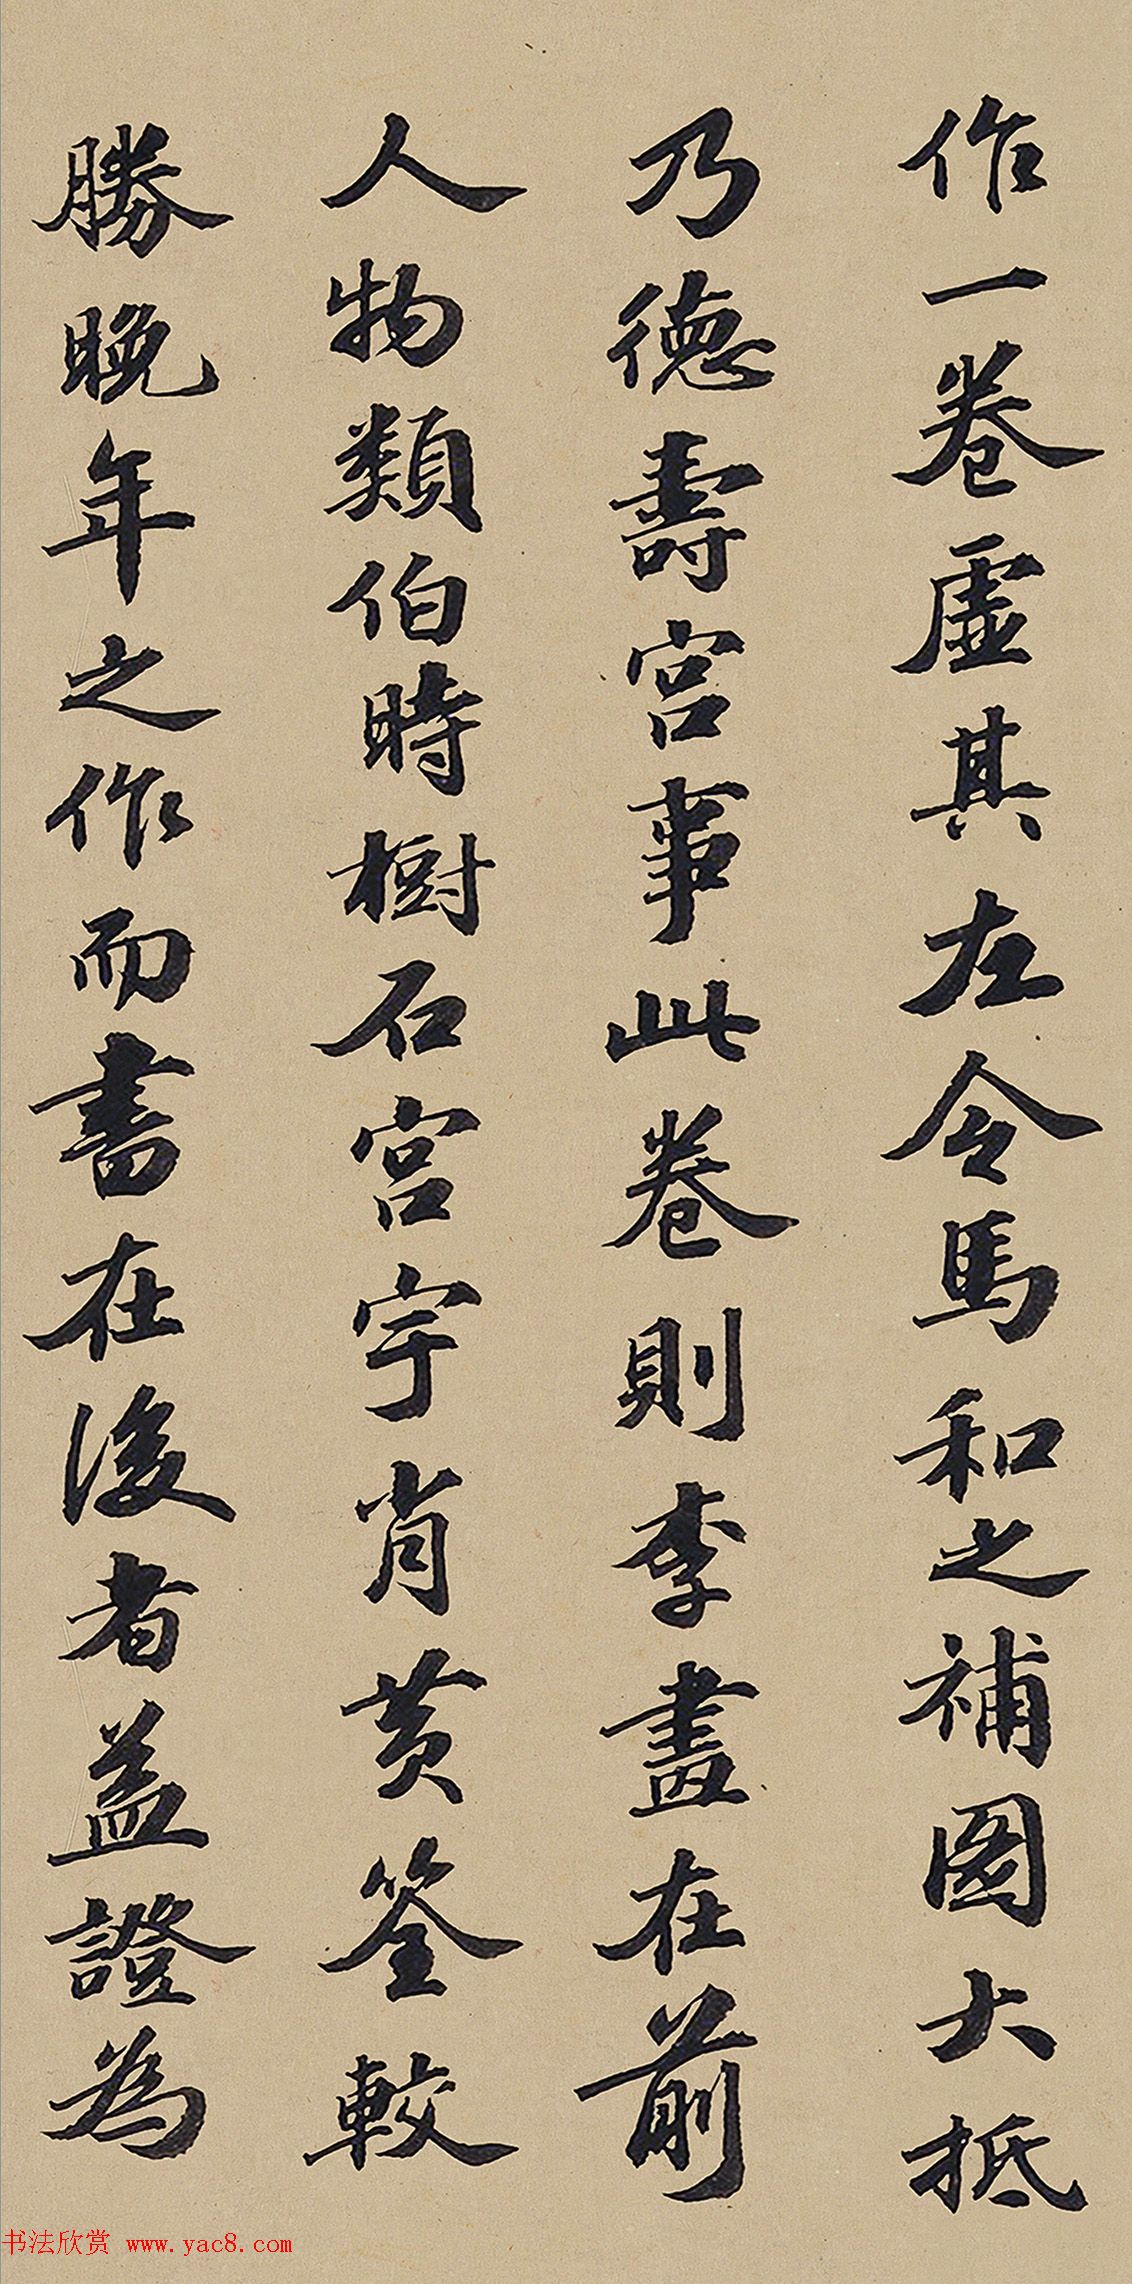 作一卷虛其左令馬和之補圖大抵
乃德壽宮事此卷則李畫在前
人物類伯時樹石宮宇肖黄筌較
勝晚年之作而書在後者益證為
书法欣赏 www.yac8.com